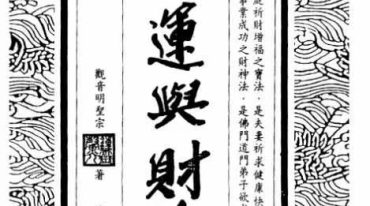 庭祈財增福之寶法．是夫妻祈求健康快
事業成功之財神法．是佛門道門弟子欲
運與財
觀音明聖宗 著